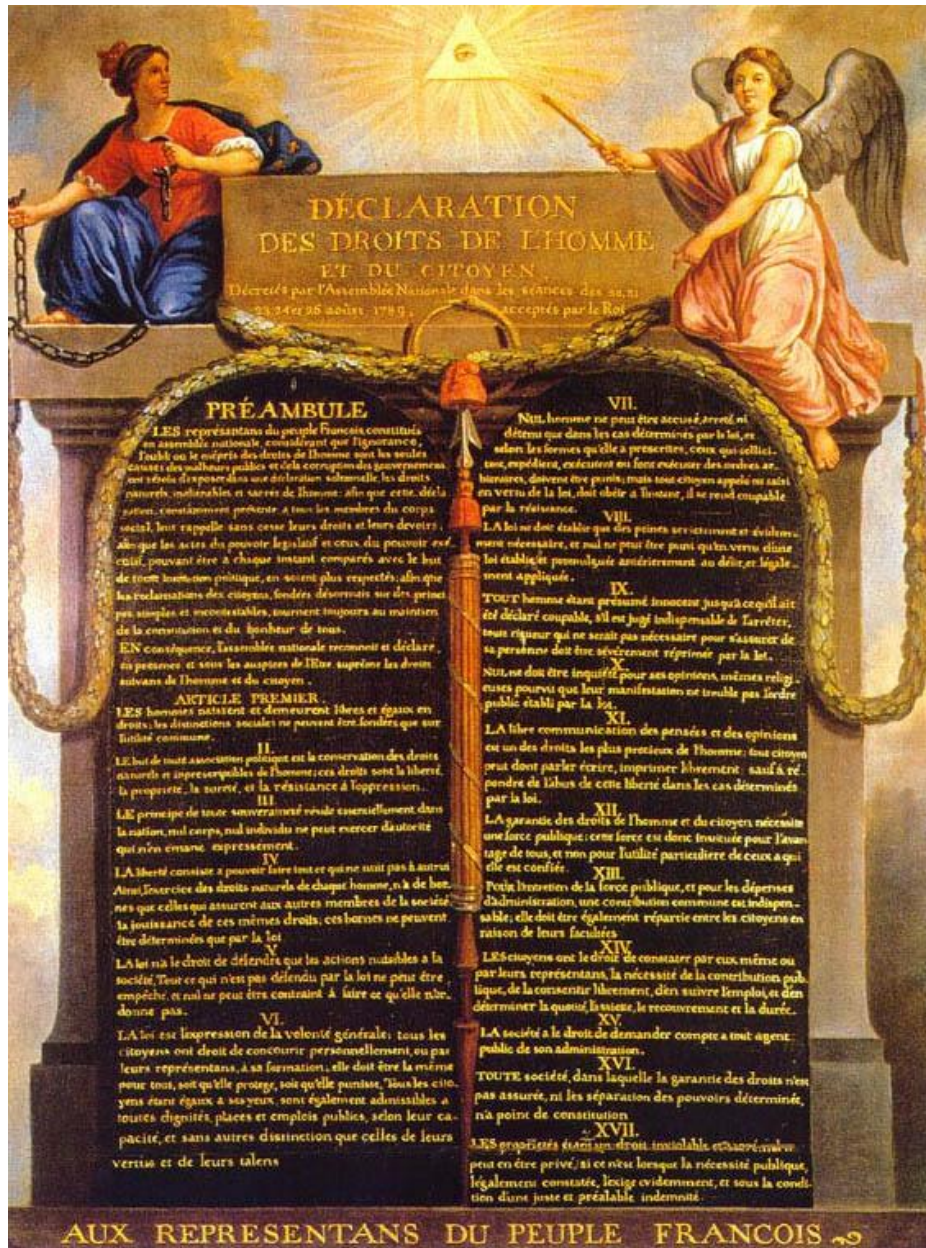 DÉCLARATION
DES DROITS DE L'HOMME
ET DU CITOYEN.
Décretés par l'Assemblée Nationale dans les séances des 20, 21
23, 24 et 26 août 1789, acceptés par le Roi
PRÉAMBULE
LES représentans du peuple François constitués
en assemblée nationale, considérant que l'ignorance,
l'oubli ou le mépris des droits de l'homme sont les seules
causes des malheurs publics et de la corruption des gouvernemens
ont résolu d'exposer dans une déclaration solemnelle, les droits
naturels, inaliénables et sacrés de l'homme; afin que cette décla
ration, constamment présente a tous les membres du corps
social, leur rappelle sans cesse leurs droits et leurs devoirs;
afin que les actes du pouvoir législatif et ceux du pouvoir exé
cutif, pouvant être à chaque instant comparés avec le but
de toute institution politique, en soient plus respectés; afin que
les réclamations des citoyens, fondées désormais sur des princi
pes simples et incontestables, tournent toujours au maintien
de la constitution et du bonheur de tous.
EN conséquence, l'assemblée nationale reconnoit et déclare
en presence et sous les auspices de l'Etre suprême les droits
suivans de l'homme et du citoyen.
ARTICLE PREMIER.
LES hommes naissent et demeurent libres et égaux en
droits; les distinctions sociales ne peuvent être fondées que sur
l'utilité commune.
II.
LE but de toute association politique est la conservation des droits
naturels et inprescriptibles de l'homme; ces droits sont la liberté,
la propriété, la sureté, et la résistance à l'oppression.
III.
LE principe de toute souveraineté réside essentiellement dans
la nation, nul corps, nul individu ne peut exercer d'autorité
qui n'en émane expressement.
IV.
LA liberté consiste a pouvoir faire tout ce qui ne nuit pas à autrui
Ainsi, l'exercice des droits naturels de chaque homme, n'a de bor-
nes que celles qui assurent aux autres membres de la société
la jouissance de ces mêmes droits; ces bornes ne peuvent
être déterminées que par la loi
V.
LA loi n'a le droit de défendre que les actions nuisibles à la
société, Tout ce qui n'est pas défendu par la loi ne peut être
empêché, et nul ne peut être contraint à faire ce qu'elle n'or-
donne pas.
VI.
LA loi est l'expression de la volonté générale; tous les
citoyens ont droit de concourir personnellement, ou par
leurs représentans, à sa formation; elle doit être la même
pour tous, soit qu'elle protege, soit qu'elle punisse, Tous les cito-
yens étant égaux à ses yeux, sont également admissibles a
toutes dignités, places et emplois publics, selon leur ca-
pacité, et sans autres distinction que celles de leurs
vertus et de leurs talens
VII.
NUL homme ne peut être accusé, arreté, ni
détenu que dans les cas déterminés par la loi, et
selon les formes qu'elle à prescrites, ceux qui sollici-
tent, expédient, exécutent ou font exécuter des ordres ar-
bitraires, doivent être punis; mais tout citoyen appelé ou saisi
en vertu de la loi, doit obéir a l'instant, il se rend coupable
par la résistance.
VIII.
LA loi ne doit établir que des peines strictement et évidem-
ment nécessaire, et nul ne peut être puni qu'en vertu d'une
loi établie, et promulguée antérierement au délit, et légale-
ment appliquée.
IX.
TOUT homme étant présumé innocent jusqu'à ce qu'il ait
été déclaré coupable, s'il est jugé indispensable de l'arrêter,
toute rigueur qui ne serait pas nécessaire pour s'assurer de
sa personne doit être sévèrement réprimée par la loi.
X.
NUL ne doit être inquiété pour ses opinions, mêmes religi
euses pourvu que leur manifestation ne trouble pas l'ordre
public établi par la loi.
XI.
LA libre communication des pensées et des opinions
est un des droits les plus precieux de l'homme; tout citoyen
peut dont parler écrire, imprimer librement; sauf à ré
pondre de l'abus de cette liberté dans les cas déterminés
par la loi.
XII.
LA garantie des droits de l'homme et du citoyen nécessite
une force publique; cette force est donc instituée pour l'avan
tage de tous, et non pour l'utilité particuliere de ceux a qui
elle est confiée.
XIII.
POUR l'entretien de la force publique, et pour les dépenses
d'administration, une contribution commune est indispen-
sable; elle doit être également répartie entre les citoyens en
raison de leurs facultées
XIV.
LES citoyens ont le droit de constater par eux même ou
par leurs représentans, la nécessité de la contribution pub-
lique, de la consentir librement, d'en suivre l'emploi, et d'en
déterminer la quotité, l'assiette, le recouvrement et la durée.
XV.
LA société a le droit de demander compte a tout agent
public de son administration.
XVI.
TOUTE société, dans laquelle la garantie des droits n'est
pas assurée, ni les séparation des pouvoirs déterminée,
n'a point de constitution
XVII.
LES propriétés étant un droit inviolable et sacré, nul ne
peut en être privé, si ce n'est lorsque la nécessité publique,
légalement constatée, l'exige evidemment, et sous la condi-
tion d'une juste et préalable indemnité.
AUX REPRESENTANS DU PEUPLE FRANCOIS